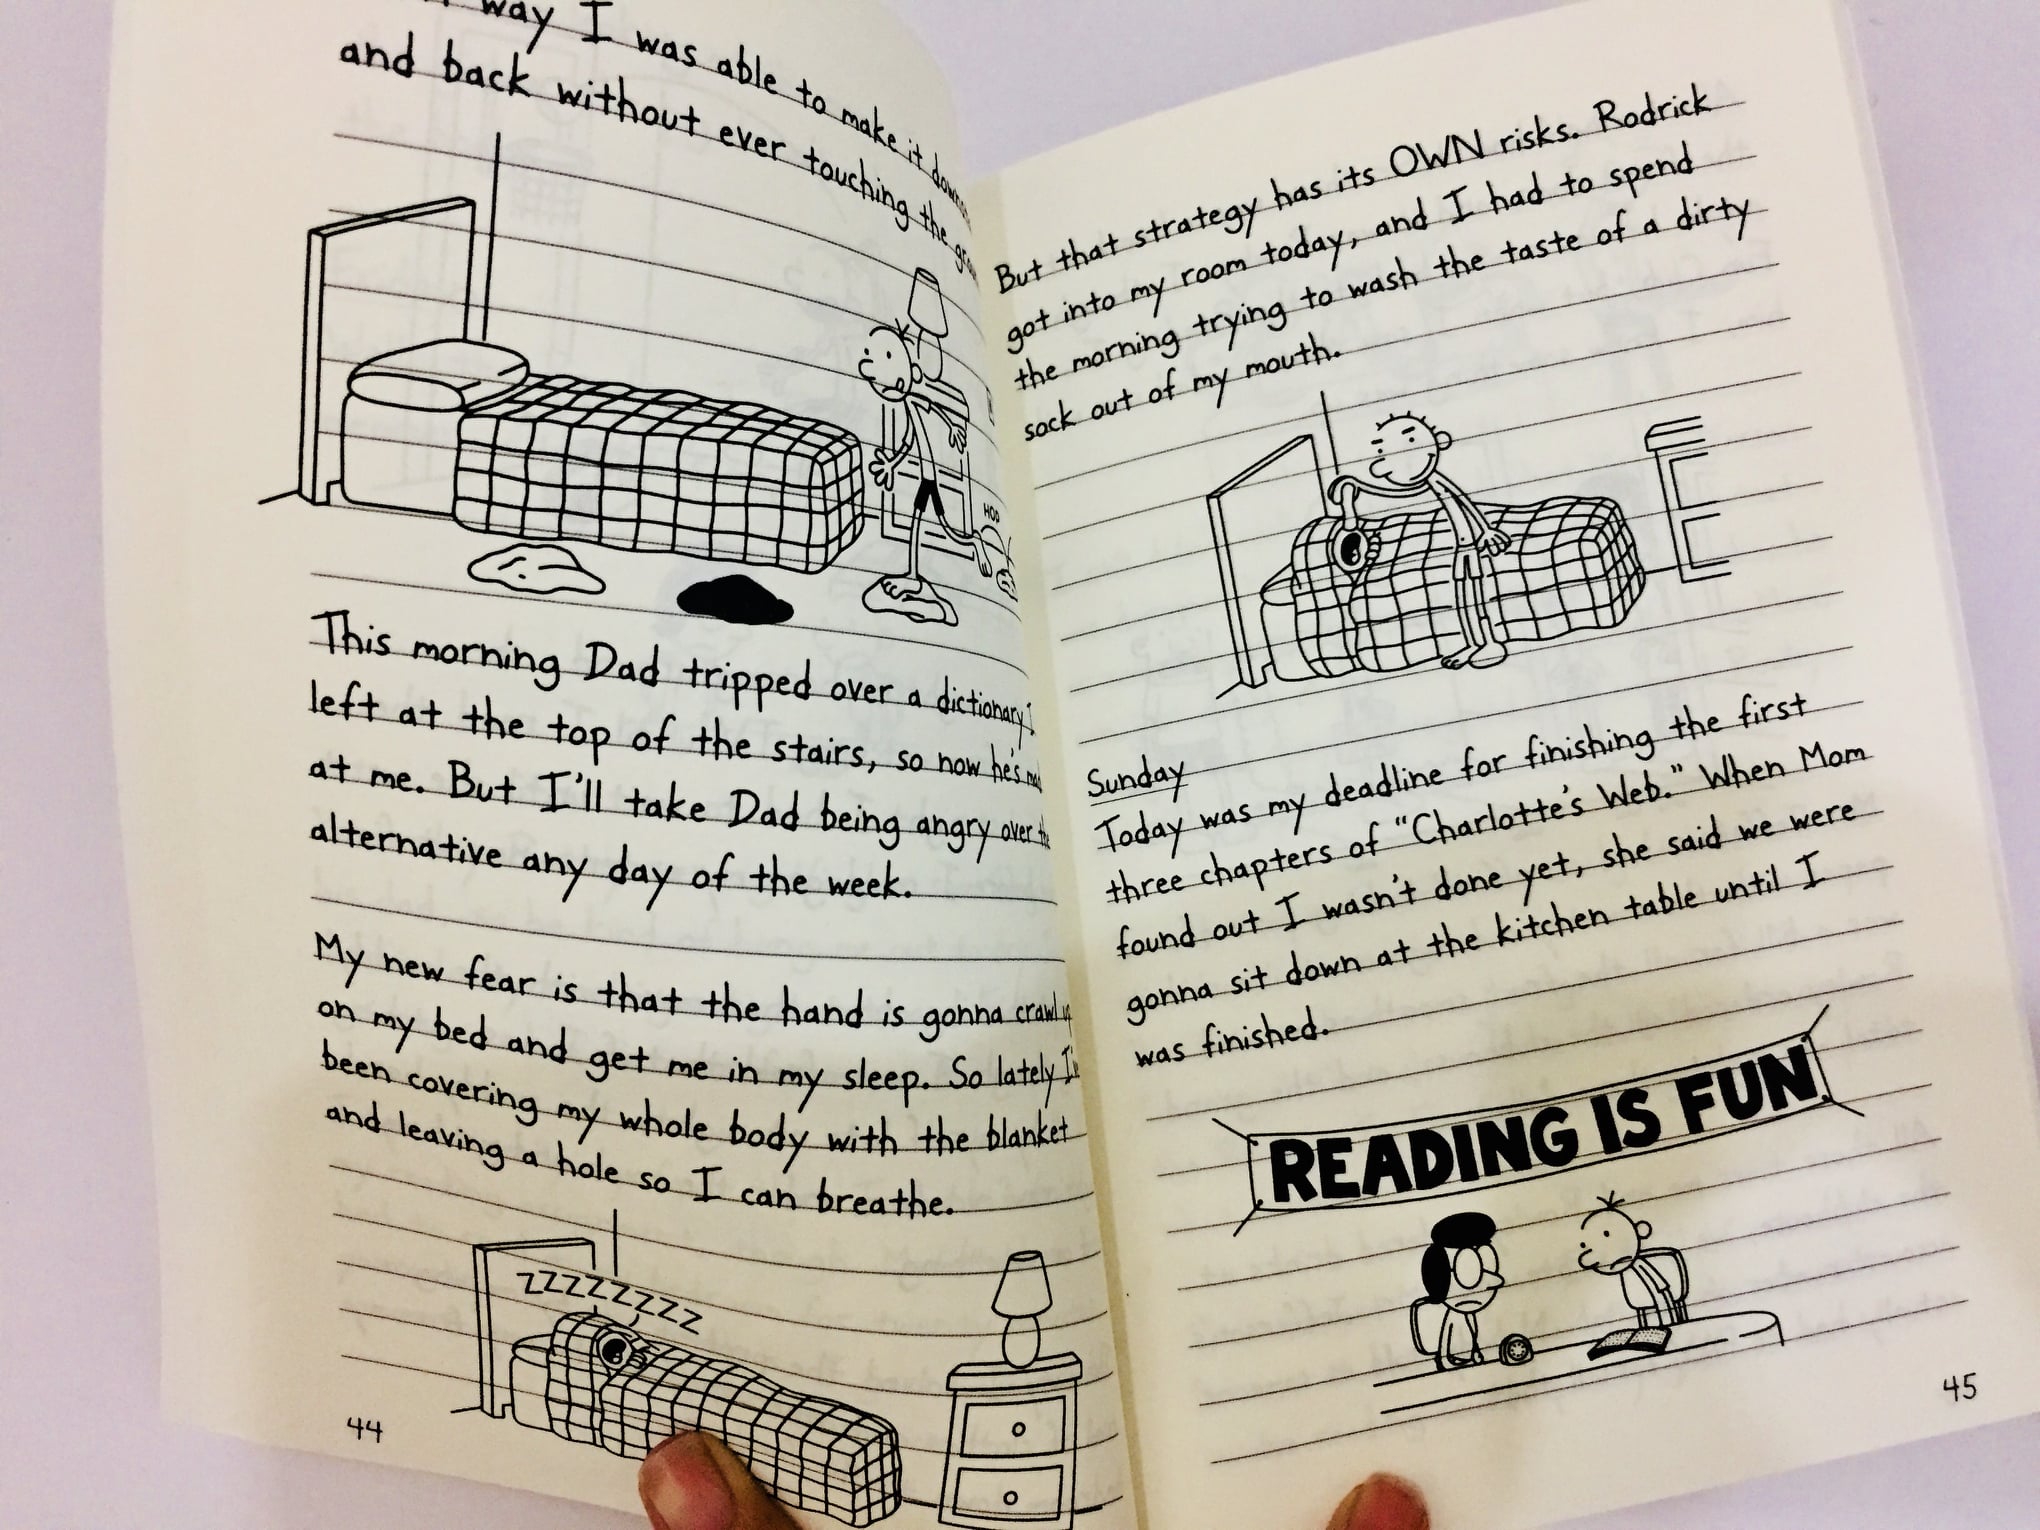 way I was able to make it
and back without ever touching the
HOP
This morning Dad tripped over a dictionary I
left at the top of the stairs, so now he's
at me. But I'll take Dad being angry over
alternative any day of the week.
My new fear is that the hand is gonna crawl
on my bed and get me in my sleep. So lately
been covering my whole body with the blanket
and leaving a hole so I can breathe.
ZZZZZZZZ
44
But that strategy has its OWN risks. Rodrick
got into my room today, and I had to spend
the morning trying to wash the taste of a dirty
sock out of my mouth.
Sunday
Today was my deadline for finishing the first
three chapters of "Charlotte's Web." When Mom
found out I wasn't done yet, she said we were
gonna sit down at the kitchen table until I
was finished.
READING IS FUN
45